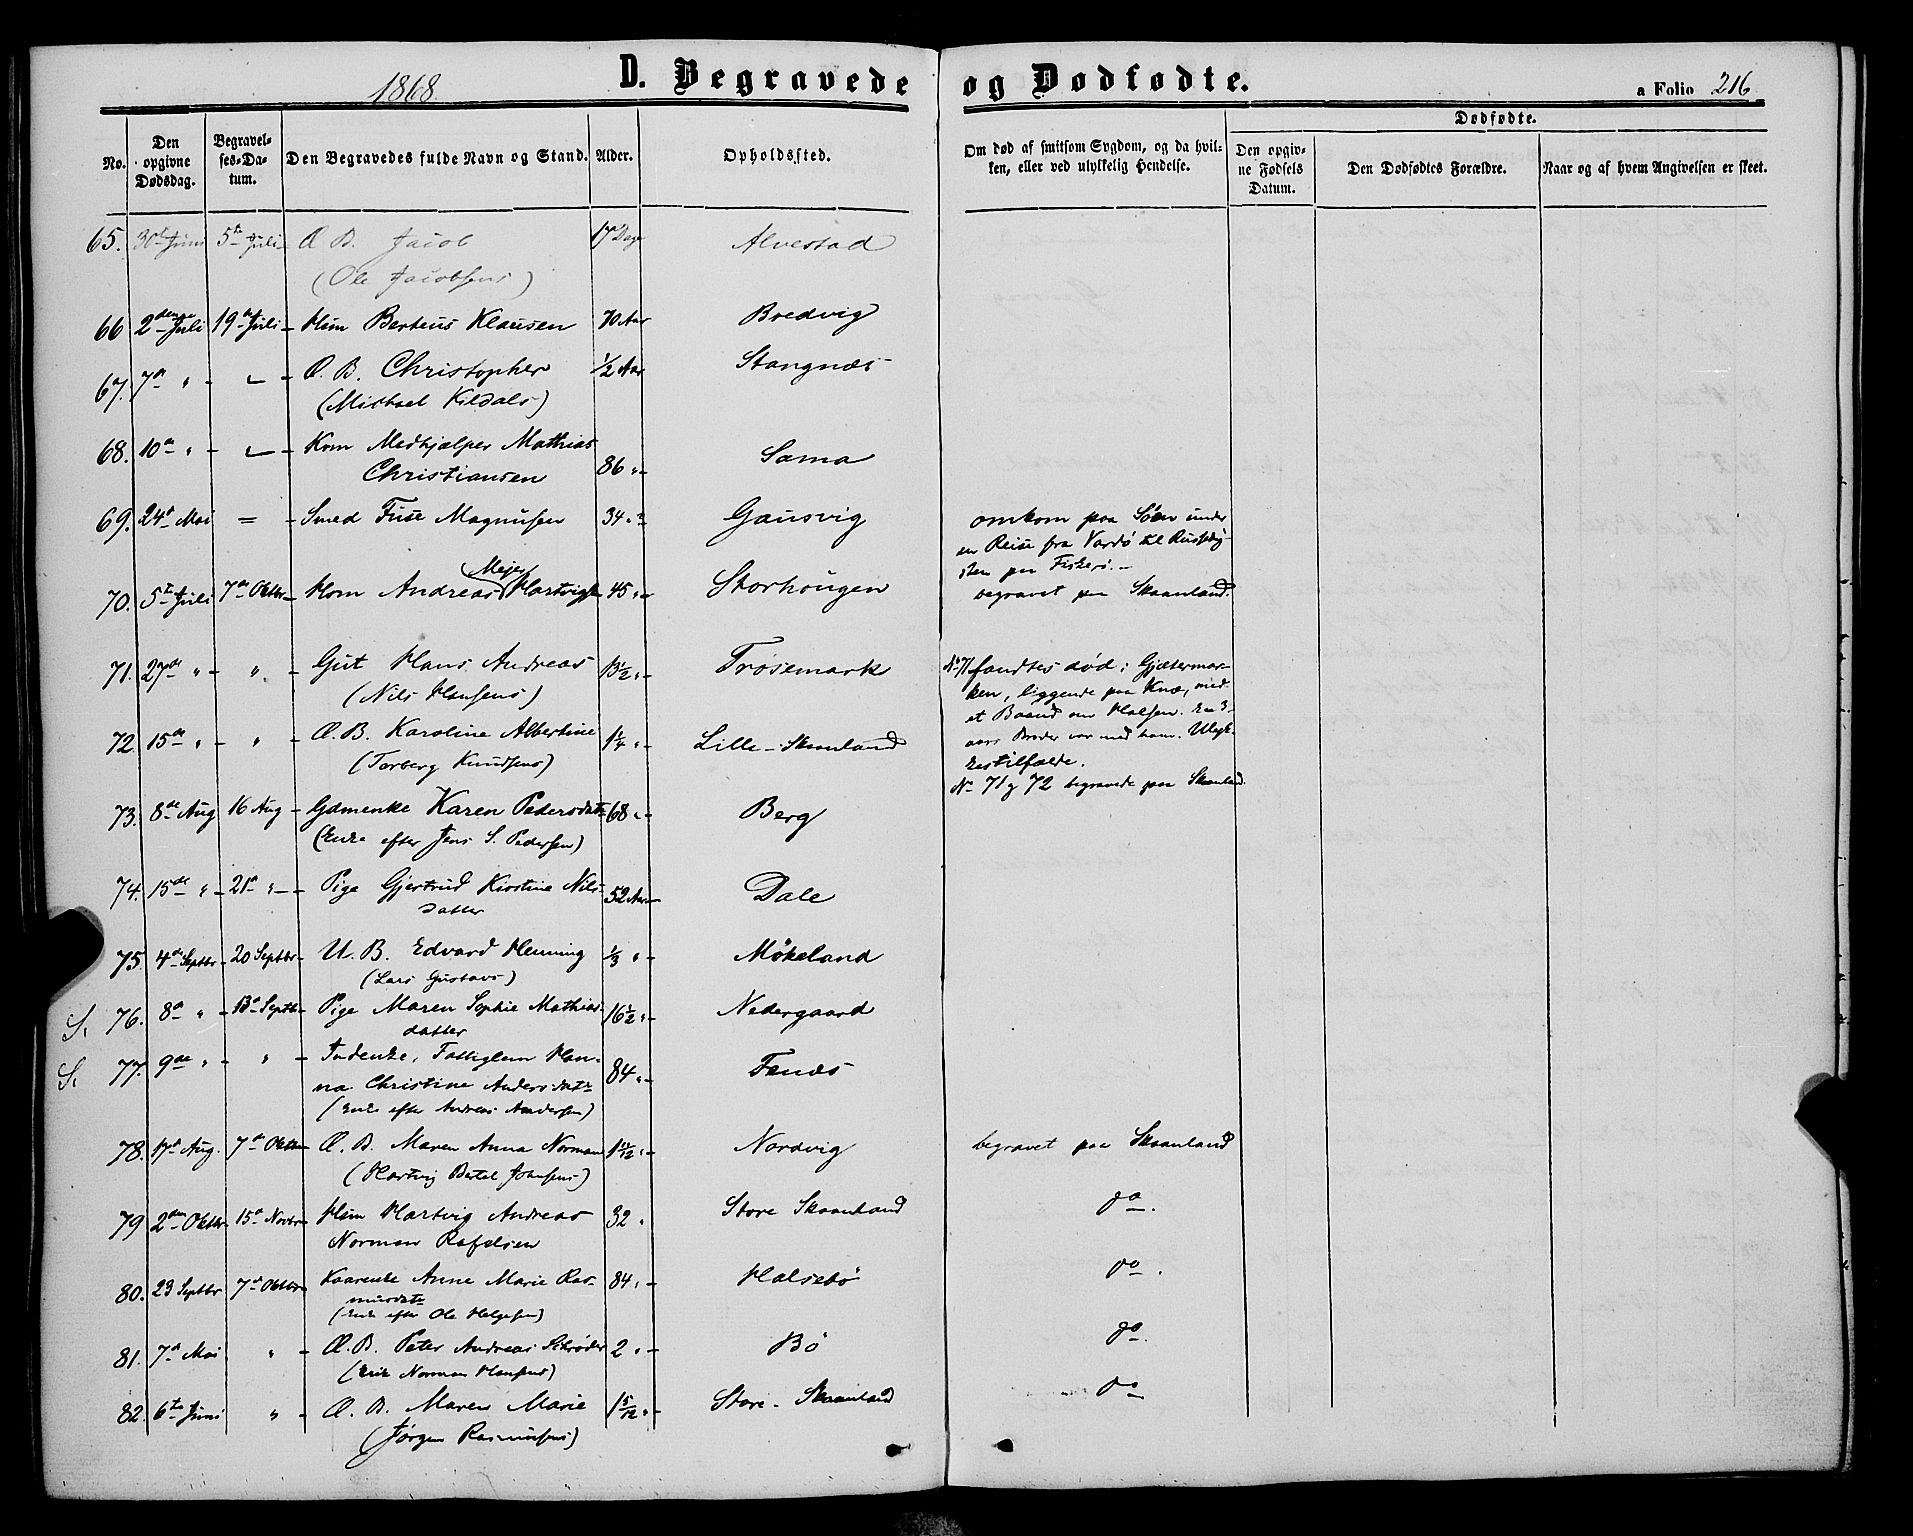 1868. D. Begravede og Dødfødte. a Folio 216
No. Den opgivne Dødsdag. Begravelses-Datum. Den Begravedes fulde Navn og Stand. Alder. Opholdssted. Om død af smitsom Sygdom, og da hvilken, eller ved ulykkelig Hendelse. Dødfødte. Den opgivne Fødsels Datum. Den Dødfødtes Forældre. Naar og af hvem Angivelsen er skeet.
65. 30te Juni 5te Juli Æ. B. Jacob 17 Dage Alvestad
(Ole Jacobsens)
66 2den Juli 19de Juli Hsm Berteus Klausen 70 Aar Bredvig
67. 7de " Æ. B. Christopher 1/2 Aar Stangnæs
(Michael Kildals)
68. 10de " Kom Medhjælper Mathias
Christiansen 86 " Sama
69. 24de Mai = Smed Fuse Magnusen 34 " Gausvig omkom paa Søen under
en Reise fra Vardø til
paa Fiskeri.
70. 5te Juli 7de Oktbr Hsm Andreas Mejer Hartvigs 45 " Storhougen begravet paa Skaanland.
71. 27de " " Gut Hans Andreas 13 1/2 " Trøsemark No 71 fandtes død i Gjætermar-
(Nils Hansens) ken, liggende paa Knæ, med
et Baand om Halsen. En 3
72 15de " " Æ. B. Karoline Albertine 1 1/4 " Lille-Skaanland aars Broder var med ham. Ulyk-
(Torberg Knudsens) kestilfælde.
No 71 og 72 begravede paa Skaanland.
73. 8de Aug 16 Aug Gdmenke Karen Pedersdatr 68 " Berg
(Enke efter Jens S. Pedersen)
74. 15de " 21de " Pige Gjertrud Kirstine Nils-
datter 52 Aar Dale
75. 4de Septbr 20 Septbr U. B. Edvard Henning 1/3 " Møkeland
(Lars Gustavs)
S. 76. 8de " 13de Septbr Pige Maren Sophie Mathias-
datter 16 1/2 " Nedergaard
S. 77. 9de " " Indenke, Fattiglem Han-
na Christine Andersdatr 84 " Fenæs
(Enke efter Andreas Andersen)
78. 17de Aug. 7de Oktbr Æ. B. Maren Anna Norman 1 11/12 " Nordvig begravet paa Skaanland
(Hartvig Bertel Johansens)
79 2den Oktbr 15de Novbr Hsm Hartvig Andreas 32 " Store Skaanland do.
Norman Rafelsen
80. 23 Septbr 7de Oktbr Kaarenke Anne Marie Ras- 84 " Halsebø do.
musdatr
(Enke efter Ole Helgesen)
81. 7de Mai " Æ. B. Peter Andreas Schrøder 2 " Bø do.
(Erik Norman Hansens)
82. 6te Juni " Æ. B. Maren Marie 1 5/12 " Store-Skaanland do
(Jørgen Rasmussens)